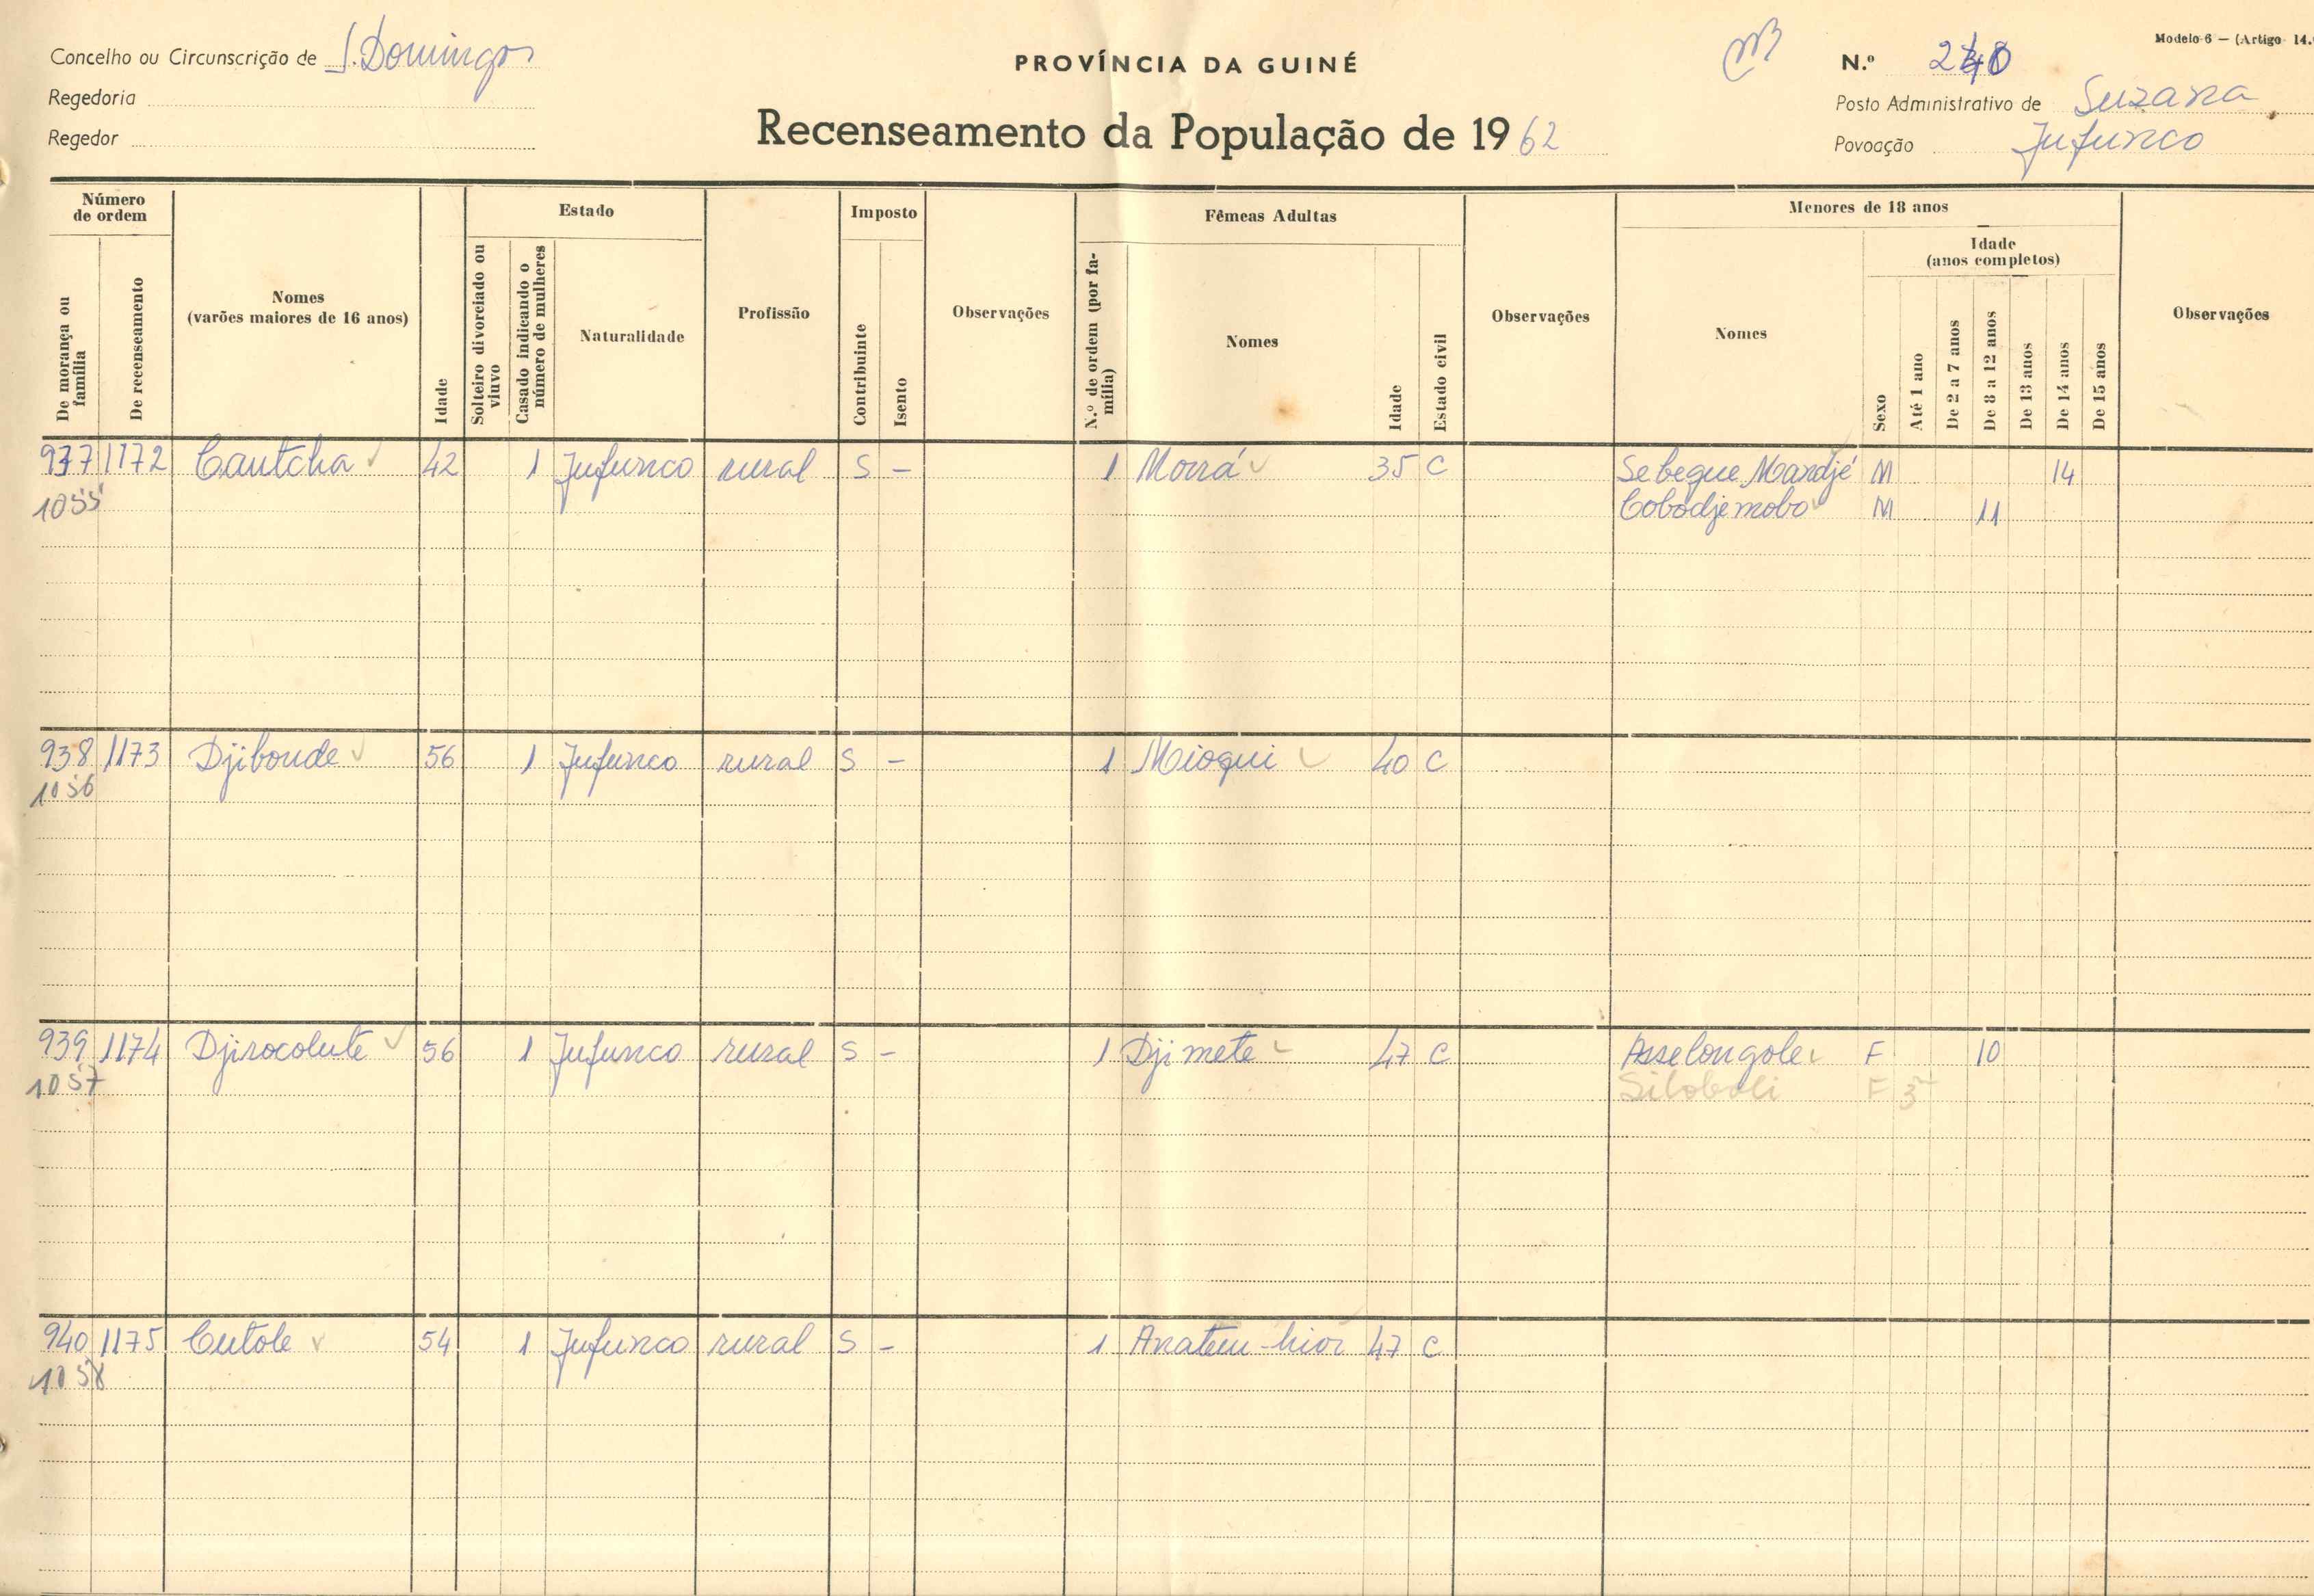 Modelo 6 — (Artigo 14.
Concelho ou Circunscrição de S. Domingos
PROVÍNCIA DA GUINÉ
N.º
Regedoria
Posto Administrativo de Suzana
Regedor
Recenseamento da População de 1962
Povoação Jufunco
Número de ordem
De morança ou família
De recenseamento
Nomes
(varões maiores de 16 anos)
Idade
Estado
Solteiro divorciado ou viuvo
Casado indicando o número de mulheres
Naturalidade
Profissão
Imposto
Contribuinte
Isento
Observações
Fêmeas Adultas
N.º de ordem (por família)
Nomes
Idade
Estado civil
Observações
Menores de 18 anos
Nomes
Sexo
Idade
(anos completos)
Até 1 ano
De 2 a 7 anos
De 8 a 12 anos
De 13 anos
De 14 anos
De 15 anos
Observações
937 1172 Cautcha 42 1 Jufunco rural S - 1 Morrá 35 C Sebegue Mandjé M 14
1055 Cobodjemobo M 11
938 1173 Djibonde 56 1 Jufunco rural S - 1 Mioqui 40 C
1056
939 1174 Djirocolute 56 1 Jufunco rural S - 1 Djimete 47 C Asselongole F 10
1057 Siloboli F 3
940 1175 Cutole 54 1 Jufunco rural S - 1 47 C
1058